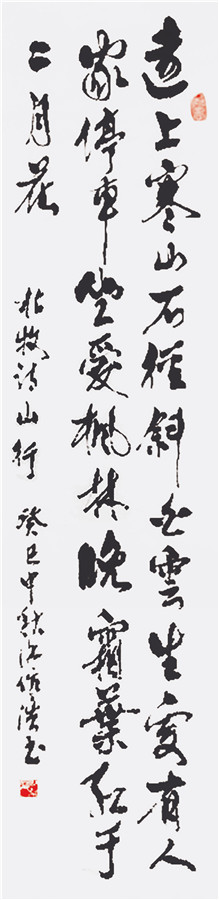 遠上寒山石徑斜白雲生處有人
家停車坐愛楓林晚霜葉紅于
二月花
杜牧诗山行 癸巳中秋